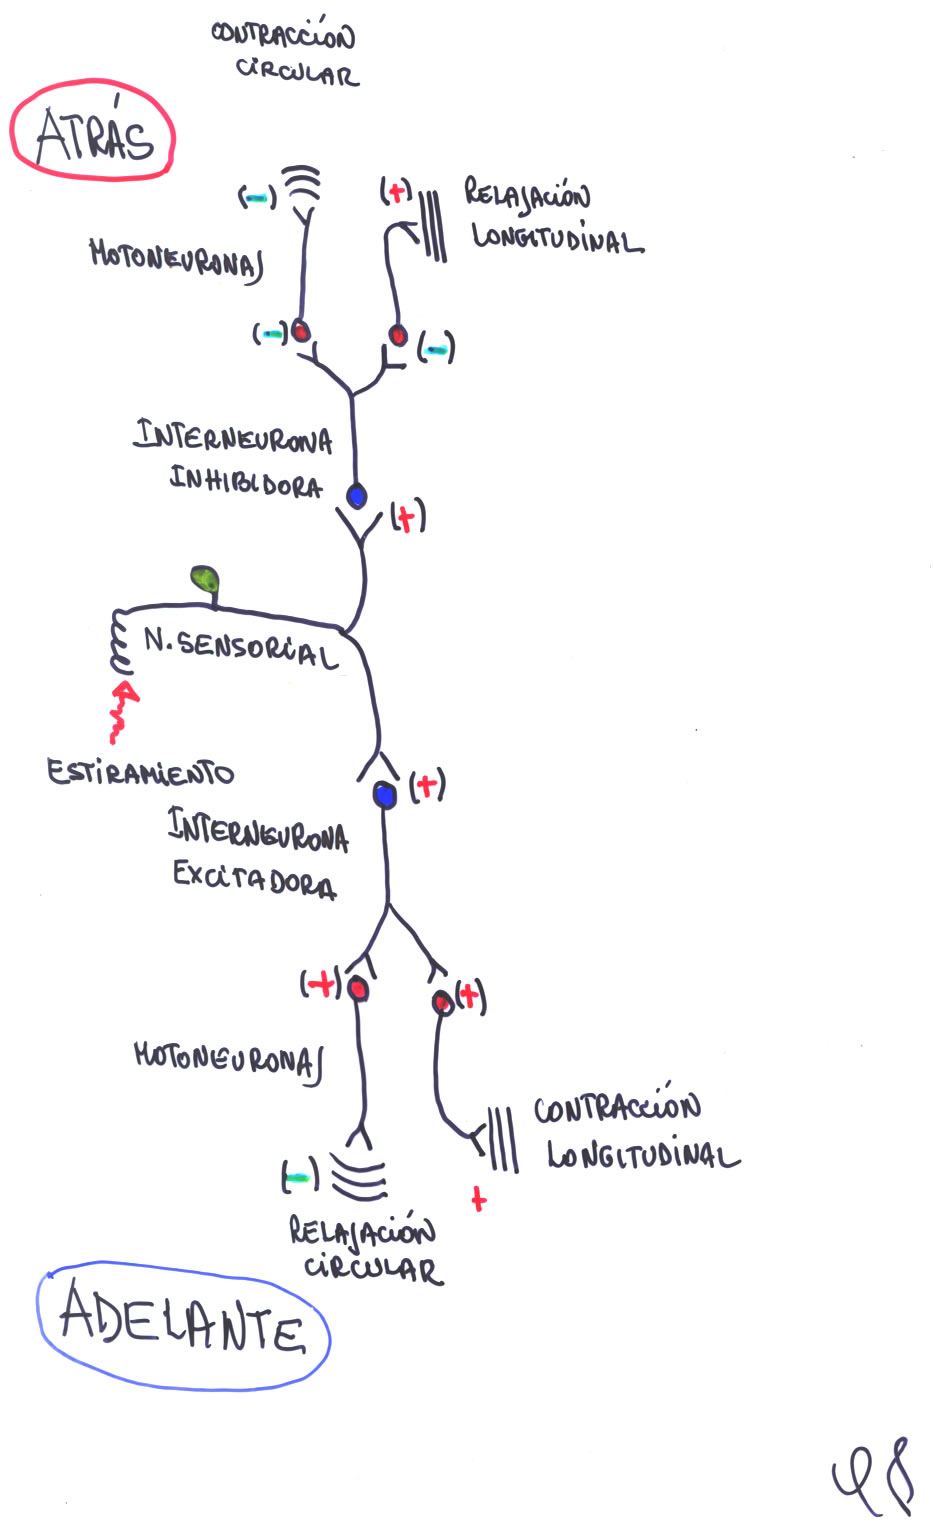 CONTRACCIÓN
CIRCULAR
ATRÁS
(-)
(+)
RELAJACIÓN
LONGITUDINAL
MOTONEURONAS
(-)
(-)
INTERNEURONA
INHIBIDORA
(+)
N. SENSORIAL
ESTIRAMIENTO
(+)
INTERNEURONA
EXCITADORA
(+)
(+)
MOTONEURONAS
CONTRACCIÓN
LONGITUDINAL
(-)
+
RELAJACIÓN
CIRCULAR
ADELANTE